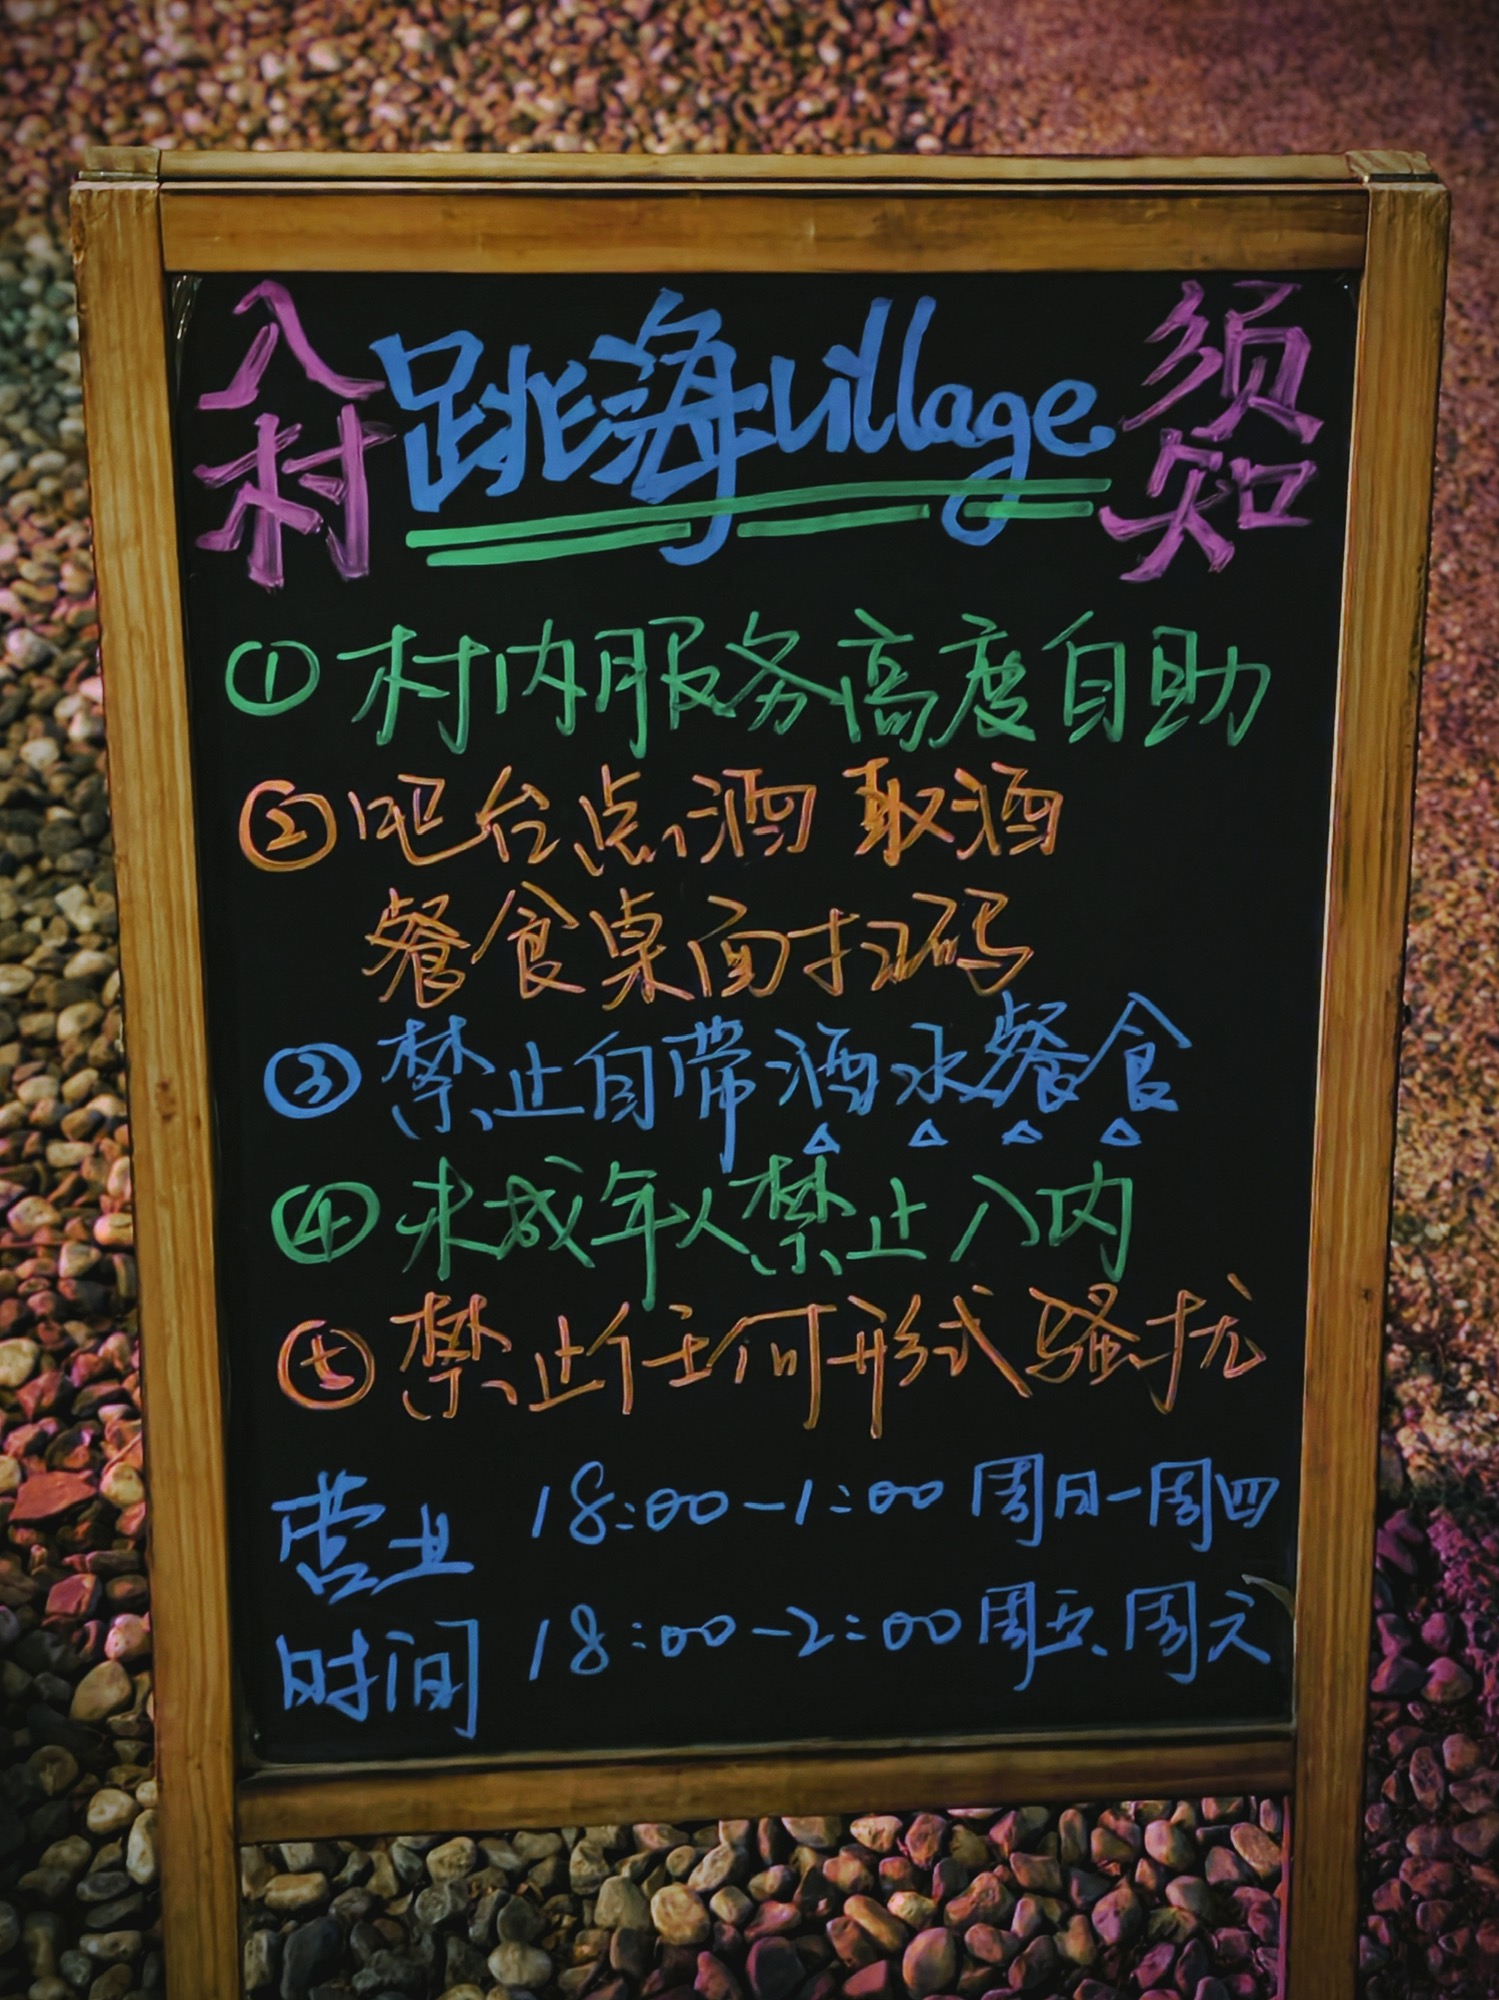 入村 跳海village 须知
①村内服务高度自助
②吧台点酒 取酒
餐食桌面扫码
③禁止自带酒水餐食
④未成年人禁止入内
⑤禁止任何形式骚扰
营业 18:00-1:00 周日-周四
时间 18:00-2:00 周五、周六